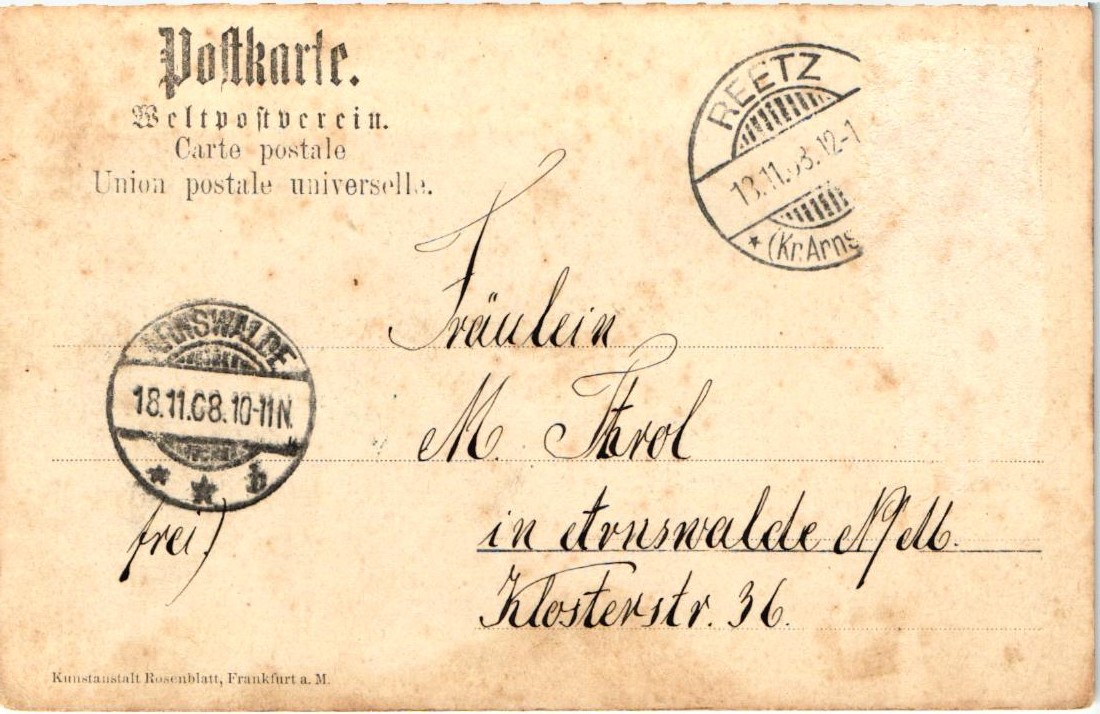 Postkarte.
Weltpostverein.
Carte postale
Union postale universelle.
REETZ
12-1
* (Kr. Arns
ARNSWALDE
18.11.08.10-11N.
* * b
Fräulein
M.
in Arnswalde N/M.
Klosterstr. 36.
frei)
Kunstanstalt Rosenblatt, Frankfurt a. M.